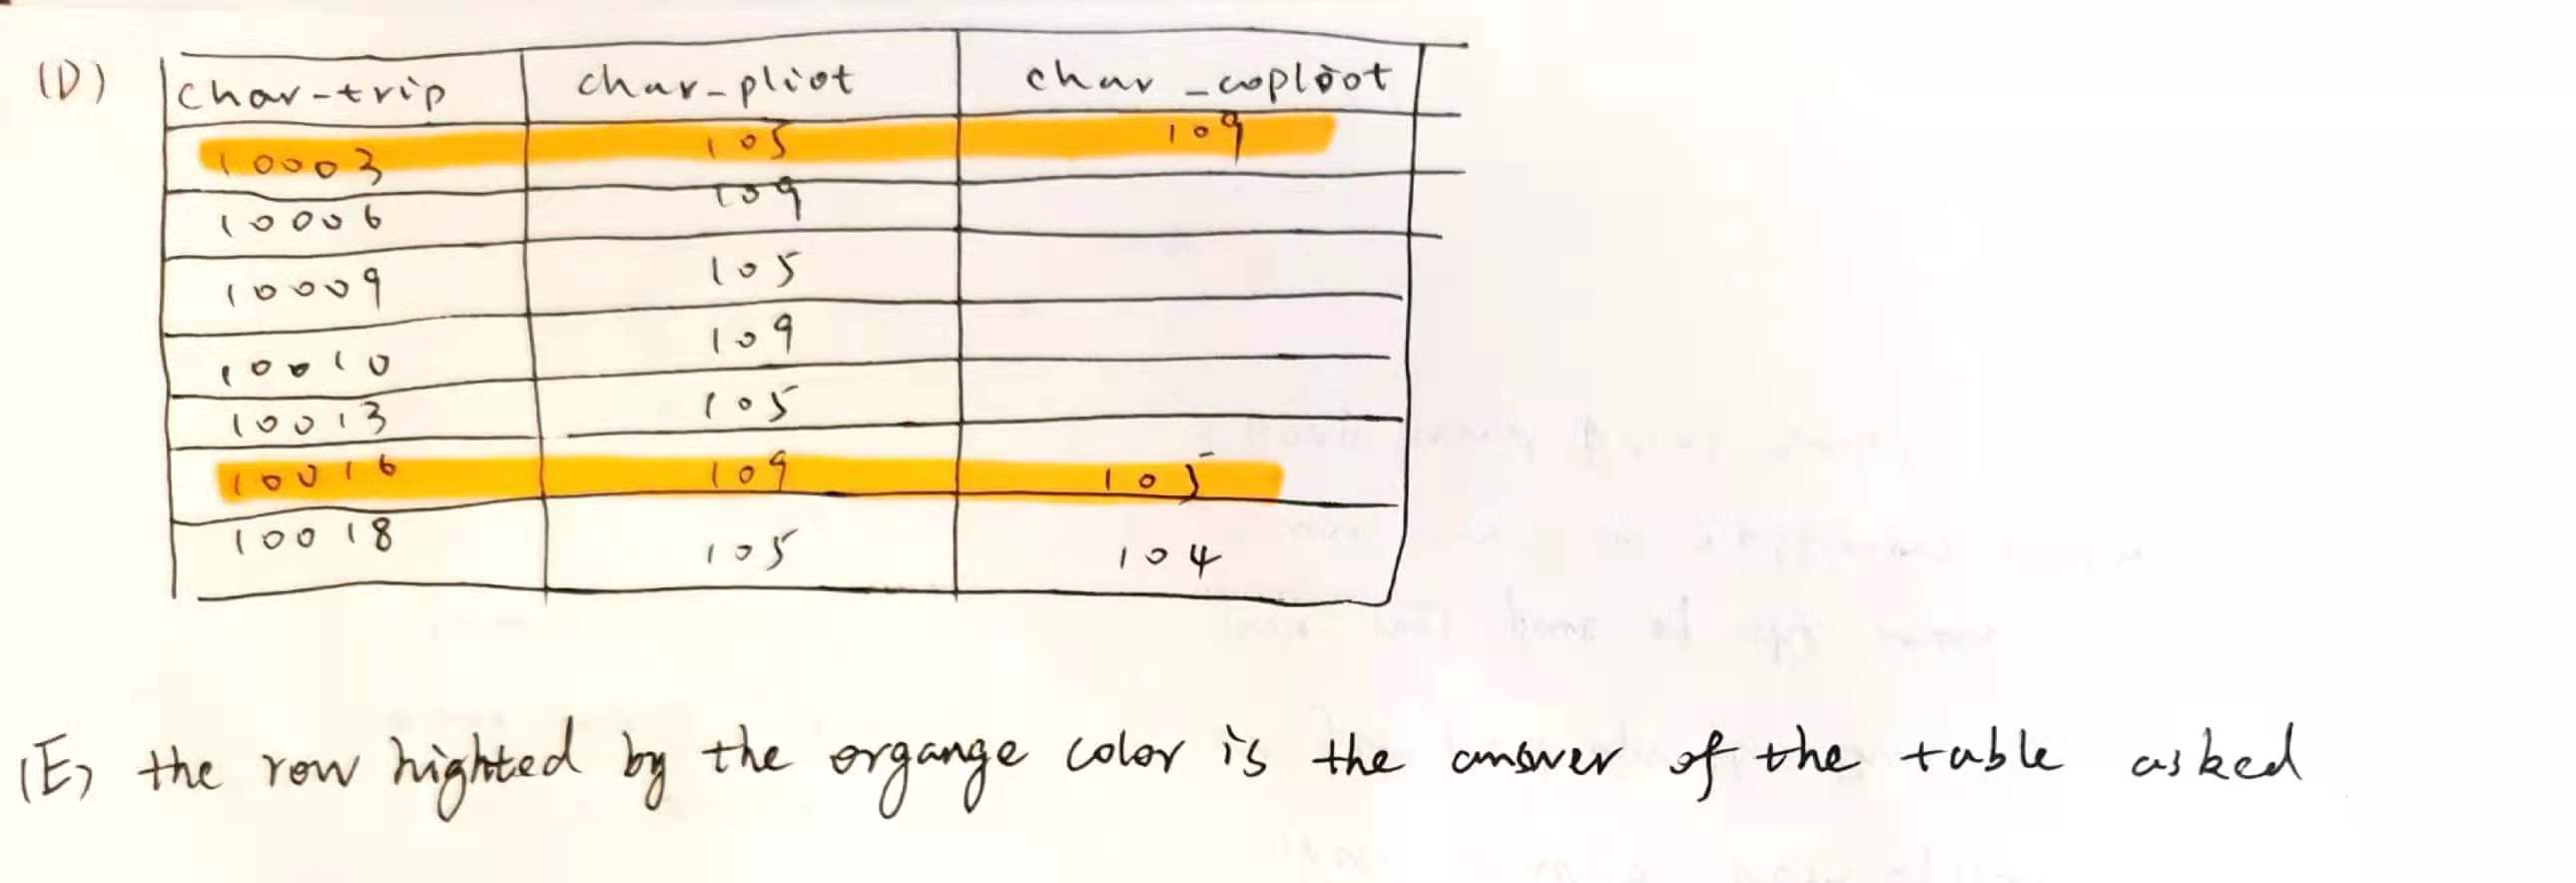 (D) char-trip char-pliot char_coploot
10003 105 109
10006 109
10009 105
10010 109
10013 105
10016 109 105
10018 105 104
(E) the row highted by the organge color is the answer of the table asked